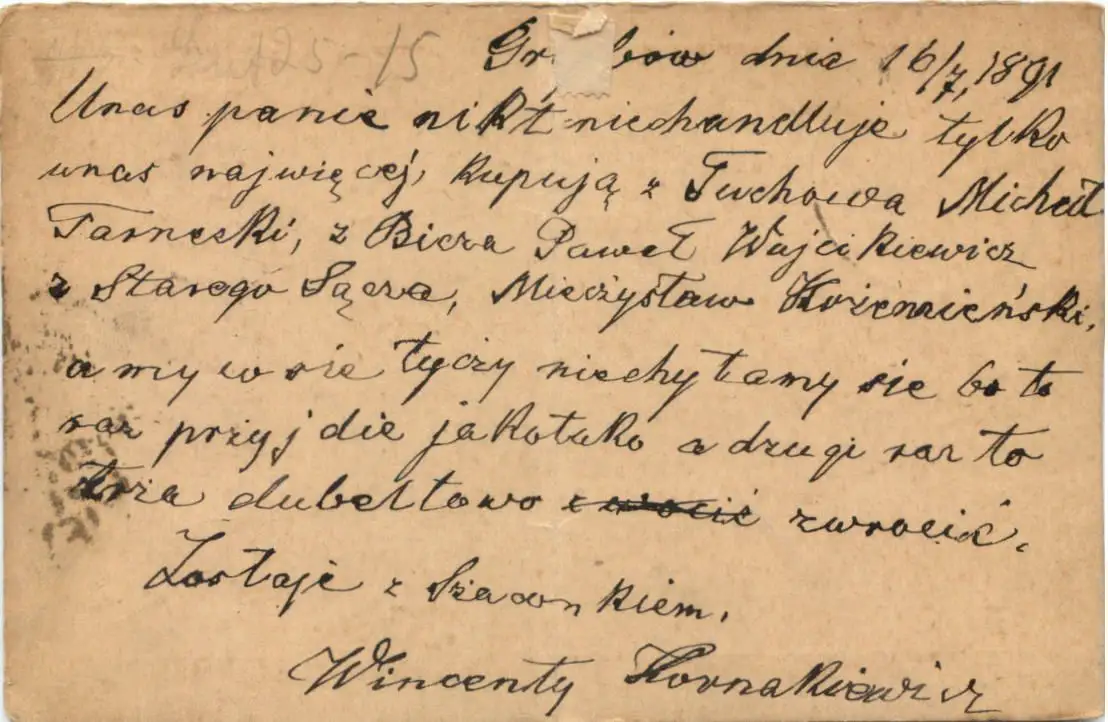 dnia 16/7, 1891
Unas panie nikt niechandluje tylko
unas najwięcej, kupują z Tuchowa Michał
Tarnecki, z Bicza Paweł Wojcikiewicz
z Starego Sącza, Mieczysław
a my w sie tyczy niechytamy sie bo to
raz przyjdie jakotako a drugi raz to
trza dubeltowo zwrocić zwrocić.
Zostaje z Szawnkiem.
Wincenty Kornakiewicz